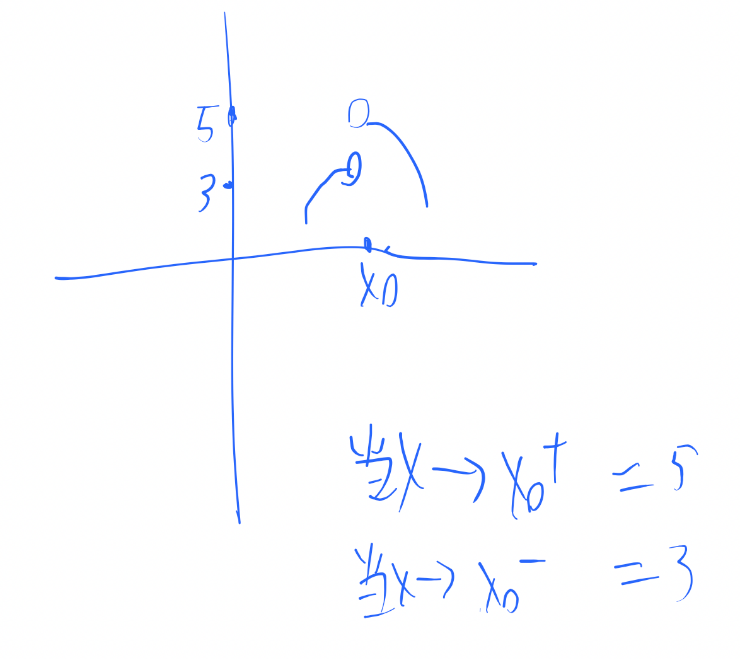 5
3
x₀
当x→x₀⁺ =5
当x→x₀⁻ =3